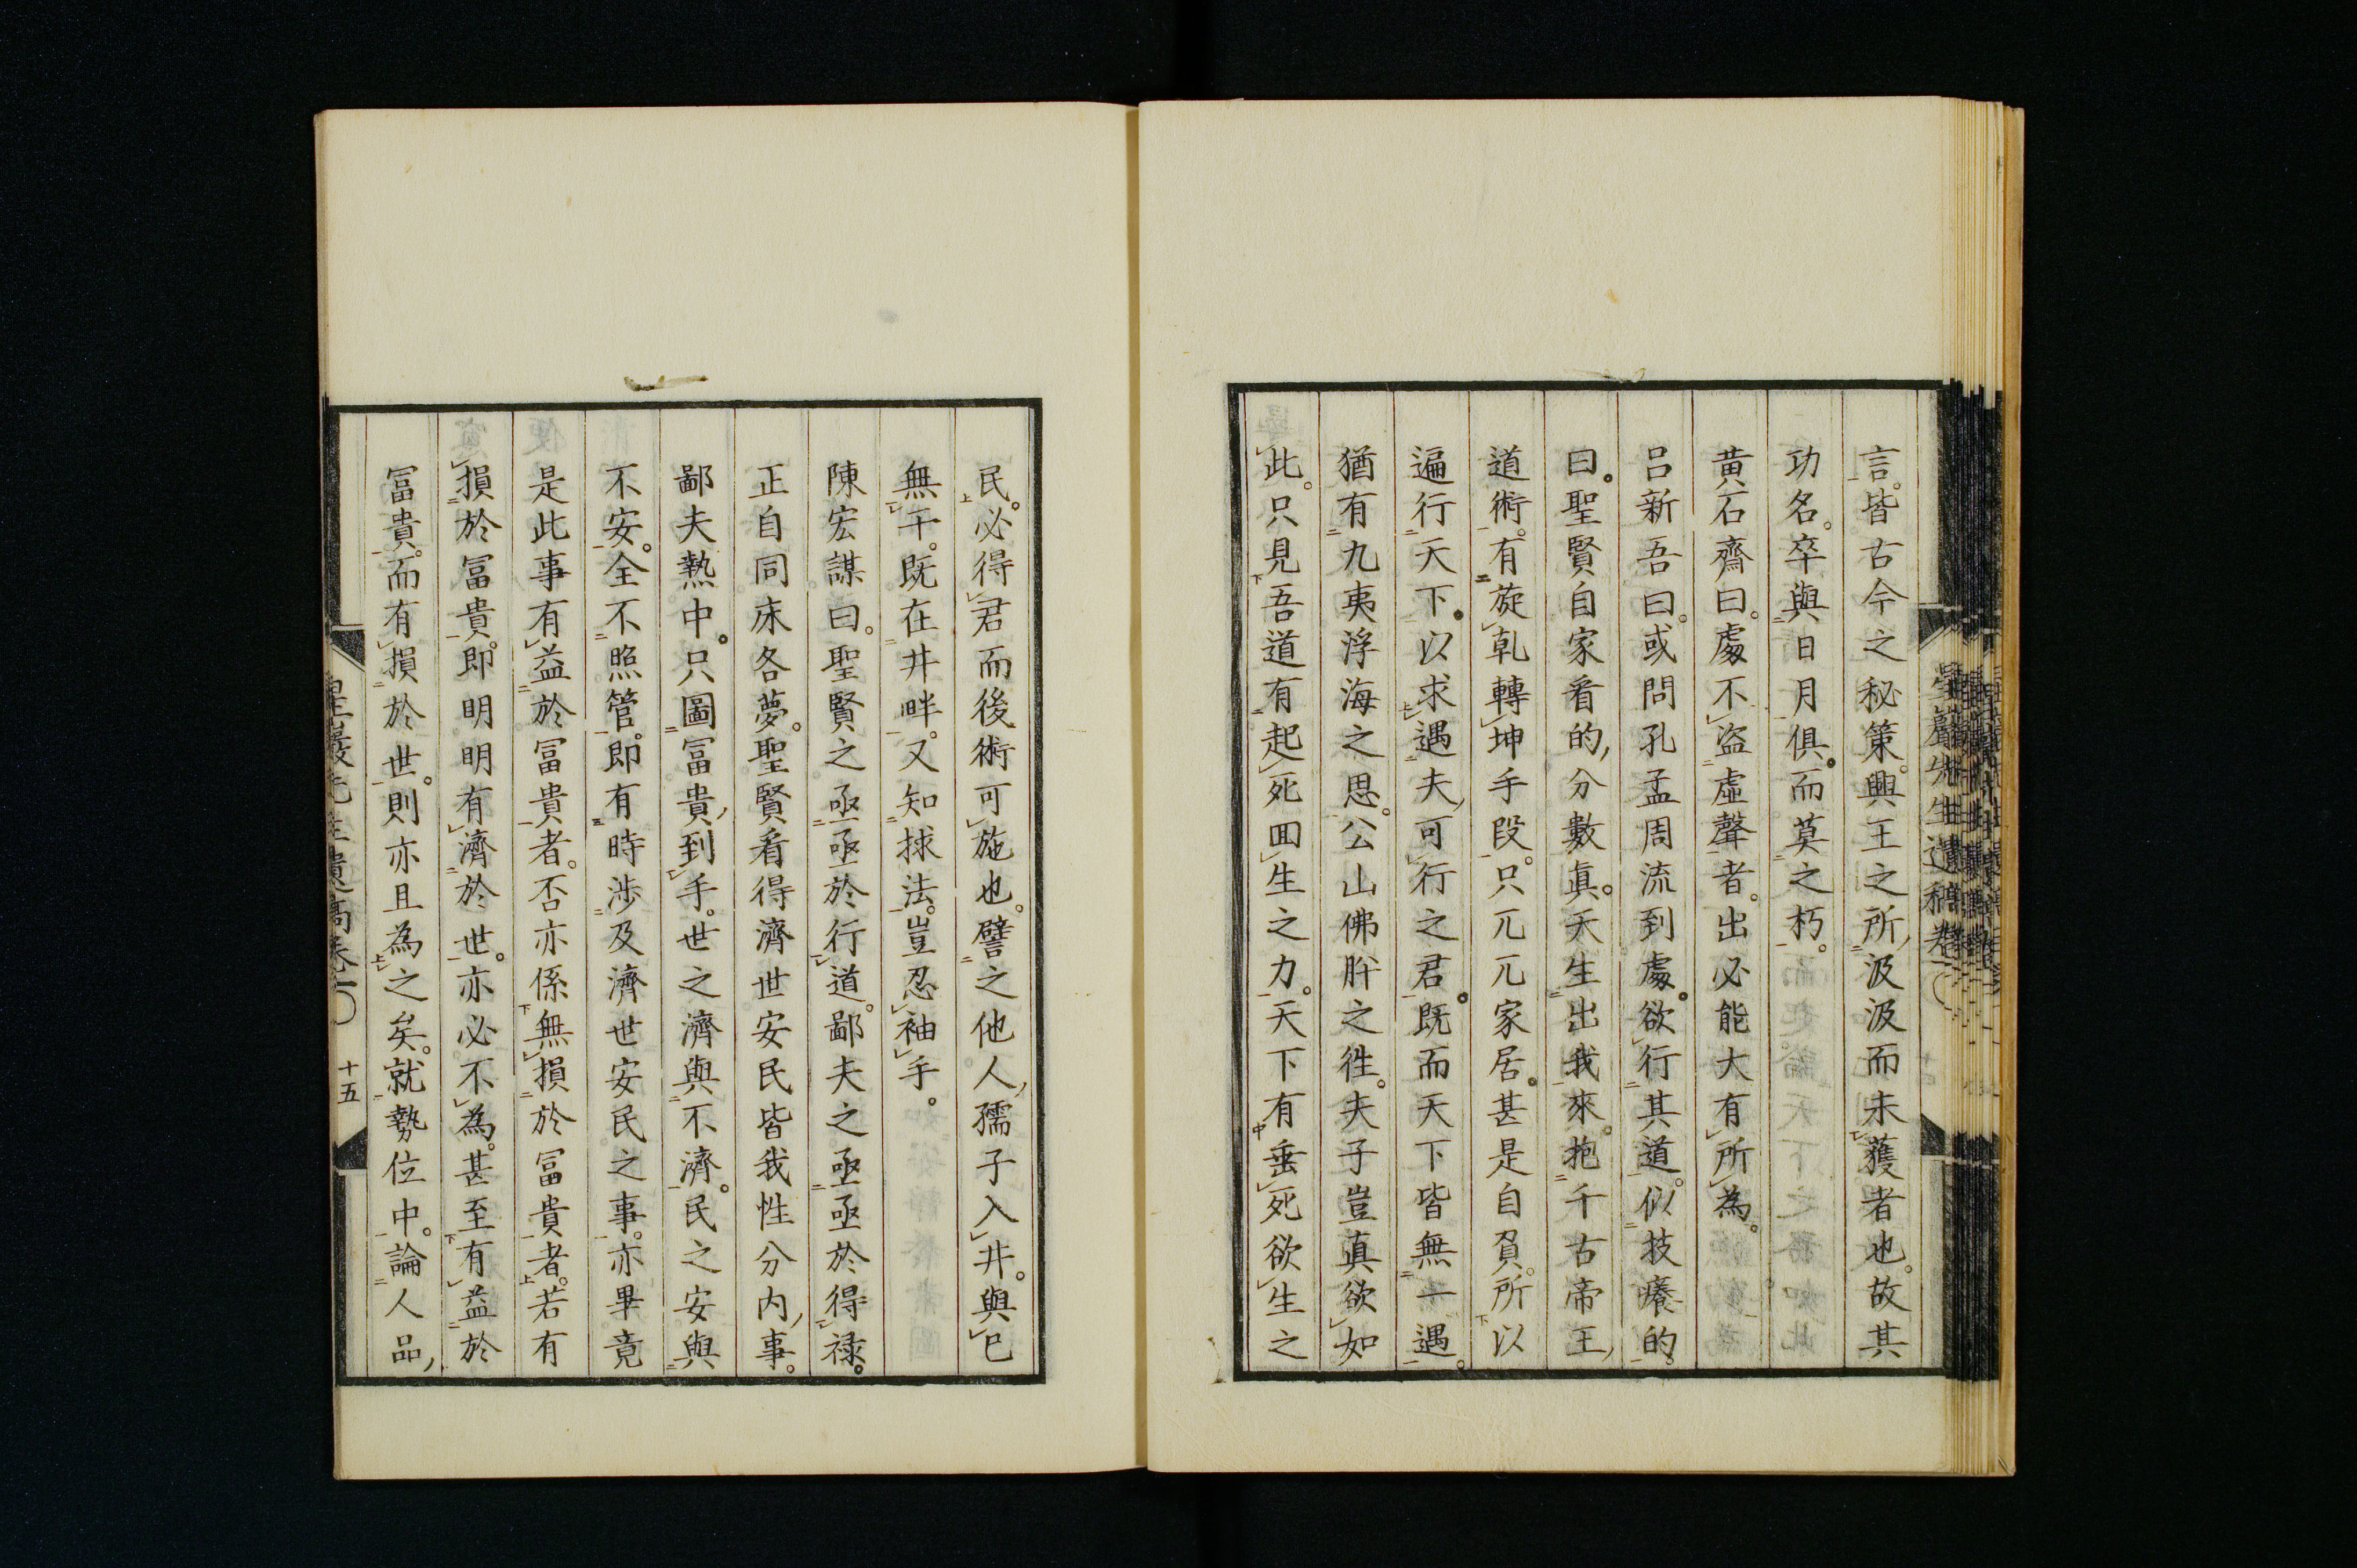 言。皆古今之秘策。興王之所汲汲而未獲者也。故其
功名。卒與日月俱。而莫之朽。
黄石齊曰。處不盗虛聲者。出必能大有所為。
呂新吾曰。或問孔孟周流到處。欲行其道。似技癢的。
曰。聖賢自家看的分數眞。天生出我來。抱千古帝王
道術。有旋乾轉坤手段。只兀兀家居。甚是自負。所以
遍行天下。以求遇夫可行之君。既而天下皆無一遇。
猶有九夷浮海之思。公山佛肸之徃。夫子豈眞欲如
此。只見吾道有起死囬生之力。天下有垂死欲生之
民。必得君而後術可施也。譬之他人孺子入井。與已
無干。既在井畔。又知捄法。豈忍袖手。
陳宏謀曰。聖賢之亟亟於行道。鄙夫之亟亟於得祿。
正自同床各夢。聖賢看得濟世安民皆我性分内事。
鄙夫熱中。只圖冨貴到手。世之濟與不濟。民之安與
不安。全不照管。即有時涉及濟世安民之事。亦畢竟
是此事有益於冨貴者。否亦係無損於冨貴者。若有
損於冨貴。即明明有濟於世。亦必不為。甚至有益於
冨貴。而有損於世。則亦且為之矣。就勢位中。論人品
星巖先生遺稿卷一
十五